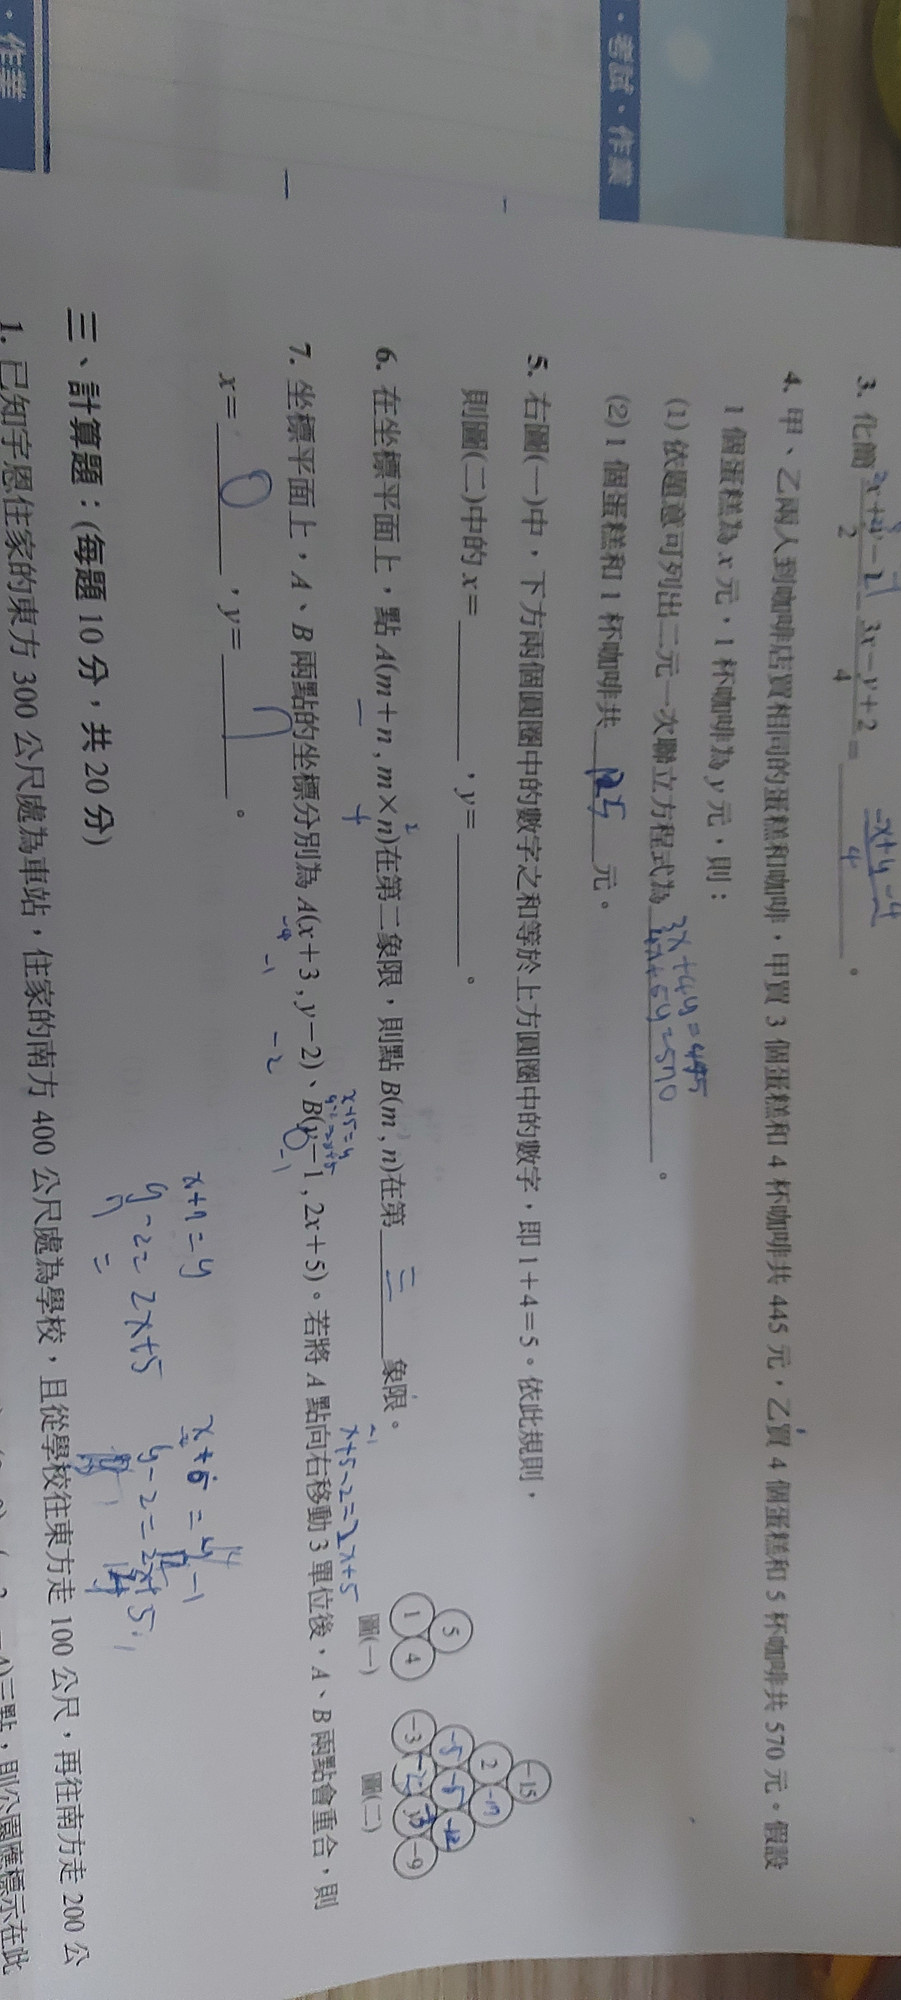 ·考試·作業
·作業
3. 化簡 2x+y-1/2 - 3x-y+2/4 = -x+y-4/4 。
4. 甲、乙兩人到咖啡店買相同的蛋糕和咖啡,甲買 3 個蛋糕和 4 杯咖啡共 445 元,乙買 4 個蛋糕和 5 杯咖啡共 570 元。假設
1 個蛋糕為 x 元,1 杯咖啡為 y 元,則:
3x+4y=445
(1) 依題意可列出二元一次聯立方程式為 4x+5y=570 。
(2) 1 個蛋糕和 1 杯咖啡共 125 元。
5. 右圖(一)中,下方兩個圓圈中的數字之和等於上方圓圈中的數字,即 1+4=5。依此規則,
則圖(二)中的 x= ,y= 。
5
1 4
圖(一)
-15
2 -17
-5
-3 -9
圖(二)
6. 在坐標平面上,點 A(m+n , m×n)在第二象限,則點 B(m , n)在第 三 象限。
- +
x+5=y
x+5-2=2x+5
7. 坐標平面上,A、B 兩點的坐標分別為 A(x+3 , y-2)、B(y-1 , 2x+5)。若將 A 點向右移動 3 單位後,A、B 兩點會重合,則
x= 0 ,y= 7 。
x+7=y
y-2=2x+5
7 =
x+6=y-1
y-2=2x+5
三、計算題:(每題 10 分,共 20 分)
1. 已知宇恩住家的東方 300 公尺處為車站,住家的南方 400 公尺處為學校,且從學校往東方走 100 公尺,再往南方走 200 公
-4)三點,則公園應標示在此